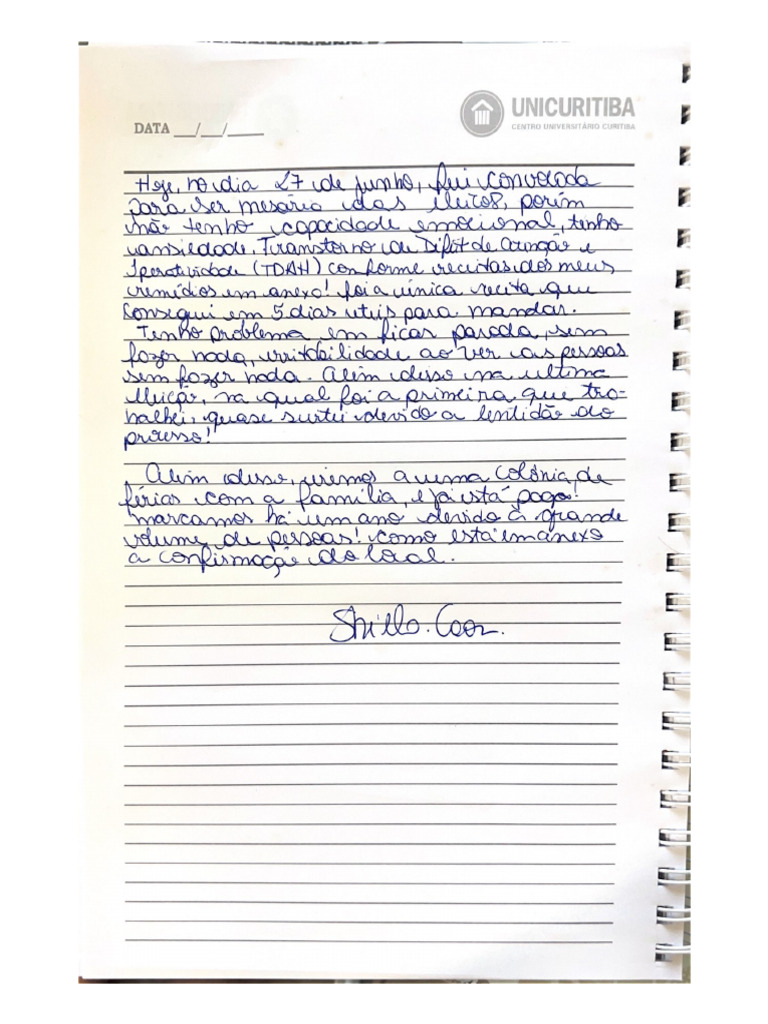 UNICURITIBA
CENTRO UNIVERSITÁRIO CURITIBA
DATA __/__/____
Hoje, no dia 27 de junho, fui convocada
para ser mesária das eleições, porém
não tenho capacidade emocional, tenho
ansiedade, Transtorno de Défit de Atenção e
Iperatividade (TDAH) conforme receitas dos meus
remédios em anexo! foi a única receita que
consegui em 5 dias uteis para mandar.
Tenho problema em ficar parada, sem
fazer nada, irritabilidade ao ver as pessoas
sem fazer nada. Além disso na ultima
eleição, na qual foi a primeira que tra-
balhei, quase surtei devido a lentidão do
processo!
Além disso, iremos a uma Colônia de
férias com a família, e já está pago!
marcamos há um ano devido à grande
volume de pessoas! como está em anexo
a confirmação do local.